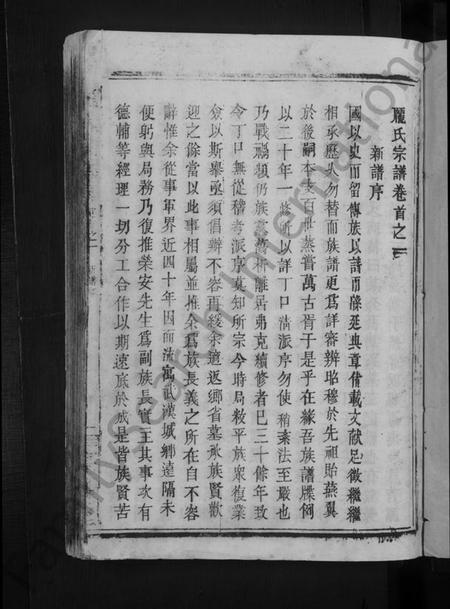 龐氏宗譜卷首之二
新譜序
國以史而留傳族以譜而緜延典章備載文献足徵繼繼
相承歷久勿替而族譜更爲詳審辨昭穆於先祖貽燕翼
於後嗣本支百世蒸嘗萬古胥于是乎在緣吾族譜牒例
以二十年一修所以詳丁口清派序勿使稍紊法至嚴也
乃戰禍頻仍族衆蕩析離居弗克續修者已三十餘年致
令丁口無從稽考派序莫知所宗今時局敉平族衆復業
僉以斯舉亟須倡辦不容再緩余適返鄉省墓承族賢歡
迎之餘當以此事相屬並推余爲族長義之所在自不容
辭惟余從事軍界近四十年因而流寓武漢城鄉遠隔未
便躬與局務乃復推榮安先生爲副族長實主其事攻有
德輔等經理一切分工合作以期速底於成是皆族賢苦
FamilySearch International